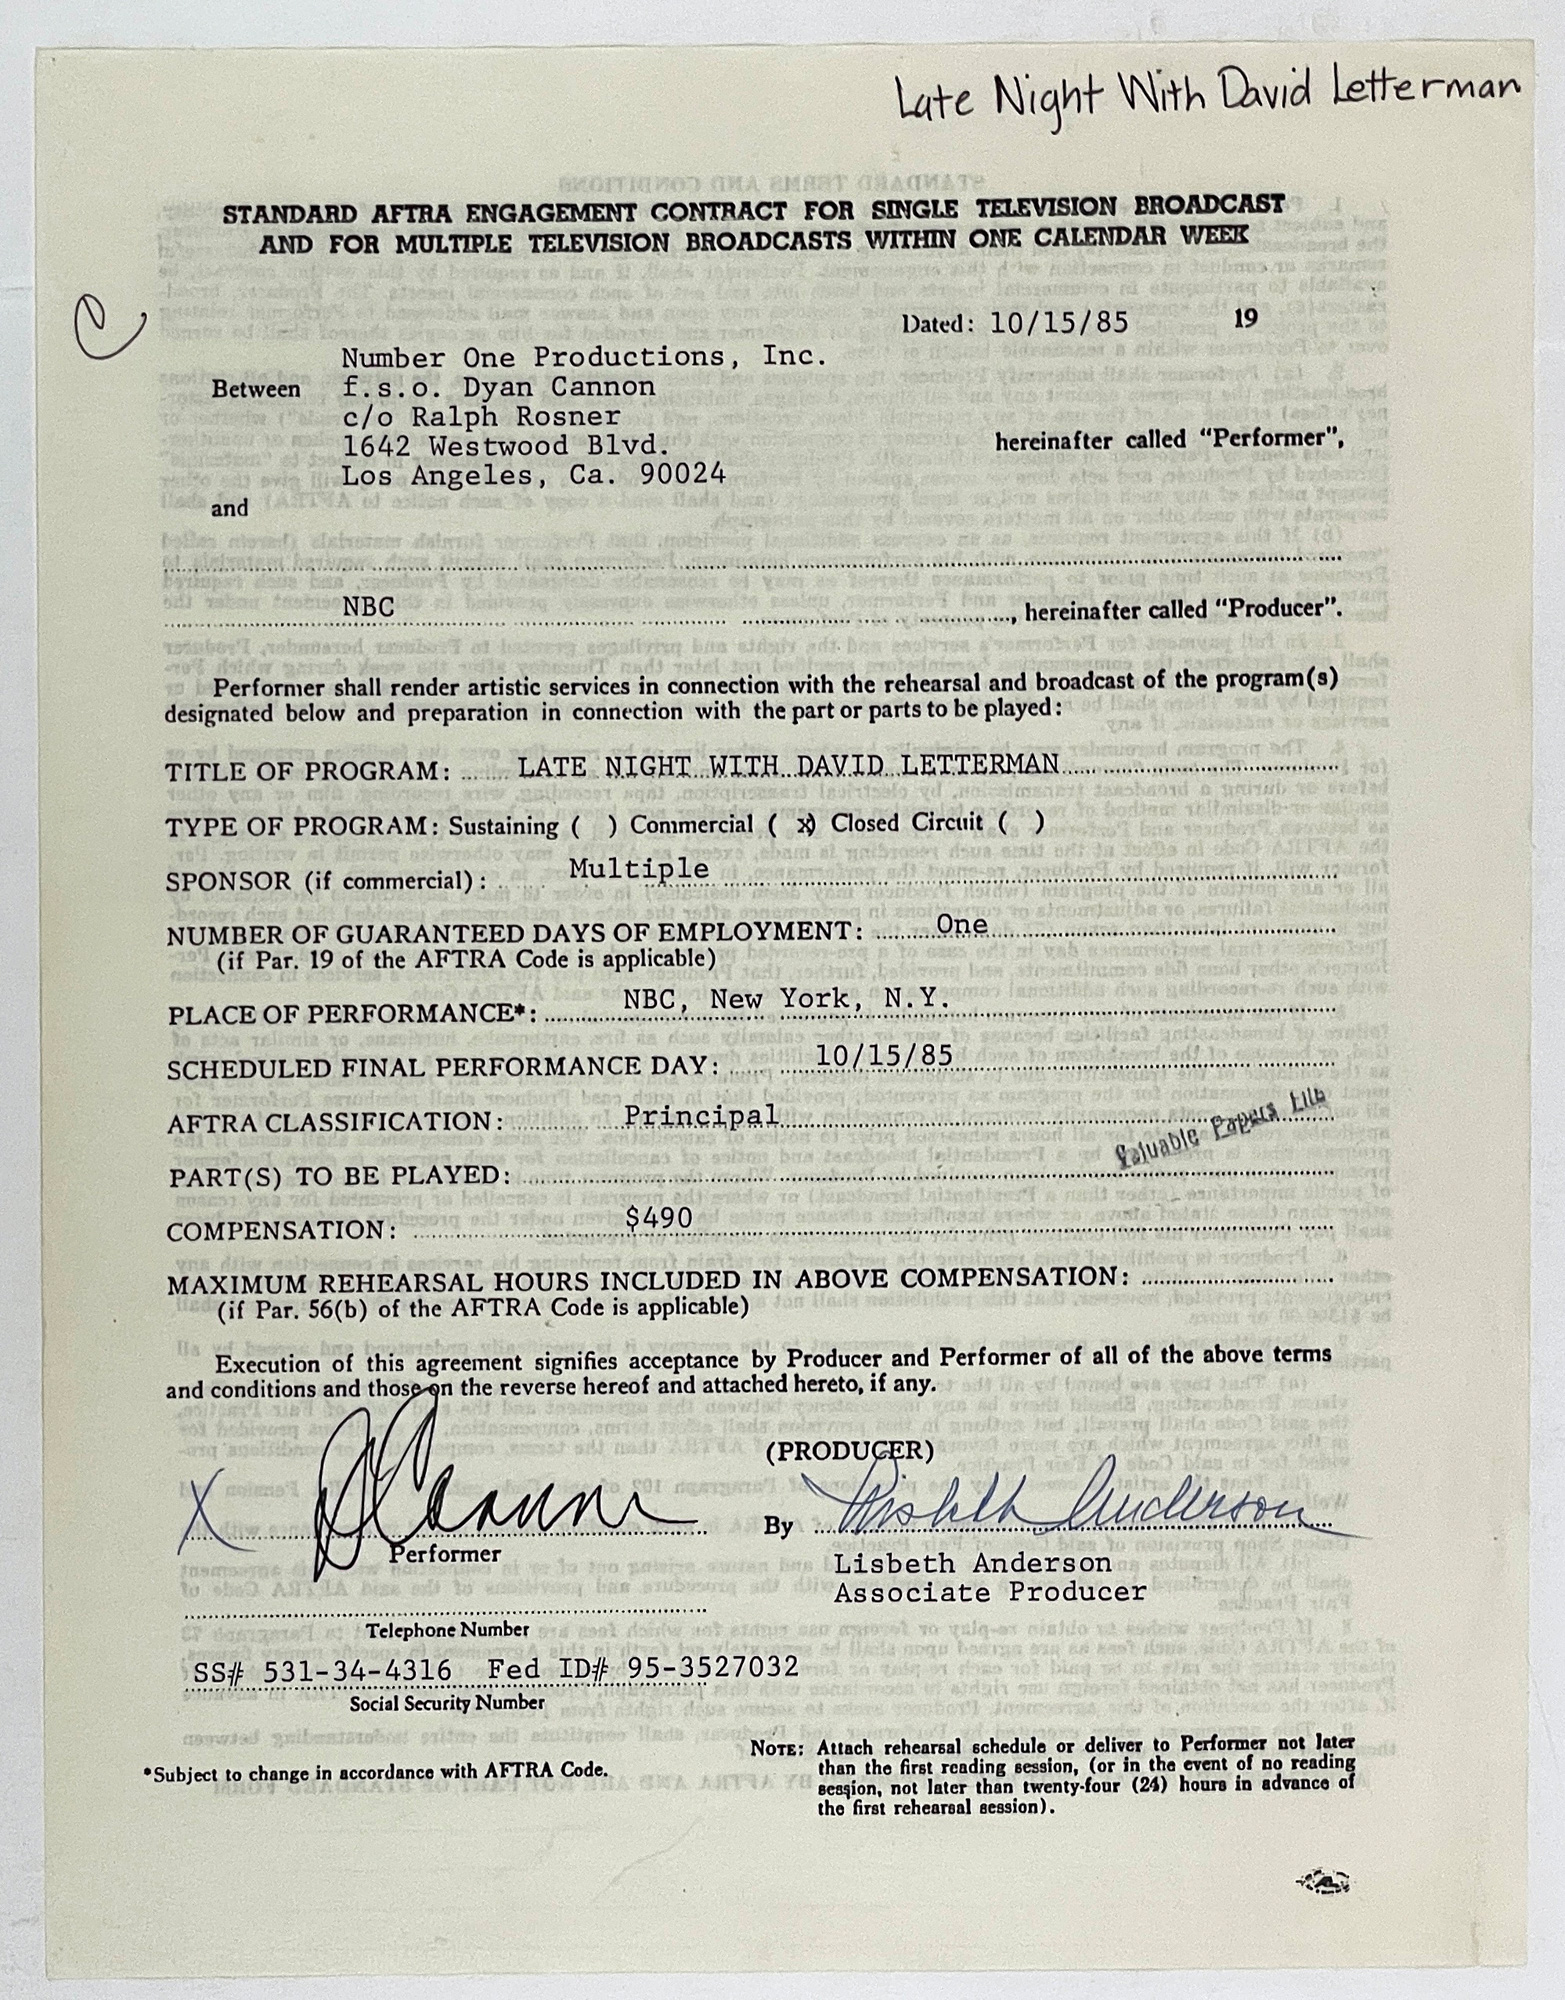 Late Night With David Letterman
STANDARD AFTRA ENGAGEMENT CONTRACT FOR SINGLE TELEVISION BROADCAST
AND FOR MULTIPLE TELEVISION BROADCASTS WITHIN ONE CALENDAR WEEK
C
Dated: 10/15/85 19
Number One Productions, Inc.
Between f.s.o. Dyan Cannon
c/o Ralph Rosner
1642 Westwood Blvd. hereinafter called "Performer",
Los Angeles, Ca. 90024
and
NBC, hereinafter called "Producer".
Performer shall render artistic services in connection with the rehearsal and broadcast of the program(s)
designated below and preparation in connection with the part or parts to be played:
TITLE OF PROGRAM: LATE NIGHT WITH DAVID LETTERMAN
TYPE OF PROGRAM: Sustaining ( ) Commercial ( x) Closed Circuit ( )
SPONSOR (if commercial): Multiple
NUMBER OF GUARANTEED DAYS OF EMPLOYMENT: One
(if Par. 19 of the AFTRA Code is applicable)
PLACE OF PERFORMANCE*: NBC, New York, N.Y.
SCHEDULED FINAL PERFORMANCE DAY: 10/15/85
AFTRA CLASSIFICATION: Principal
Valuable Papers File
PART(S) TO BE PLAYED:
COMPENSATION: $490
MAXIMUM REHEARSAL HOURS INCLUDED IN ABOVE COMPENSATION:
(if Par. 56(b) of the AFTRA Code is applicable)
Execution of this agreement signifies acceptance by Producer and Performer of all of the above terms
and conditions and those on the reverse hereof and attached hereto, if any.
(PRODUCER)
X D Cannon By Lisbeth Anderson
Performer Lisbeth Anderson
Associate Producer
Telephone Number
SS# 531-34-4316 Fed ID# 95-3527032
Social Security Number
*Subject to change in accordance with AFTRA Code.
NOTE: Attach rehearsal schedule or deliver to Performer not later
than the first reading session, (or in the event of no reading
session, not later than twenty-four (24) hours in advance of
the first rehearsal session).